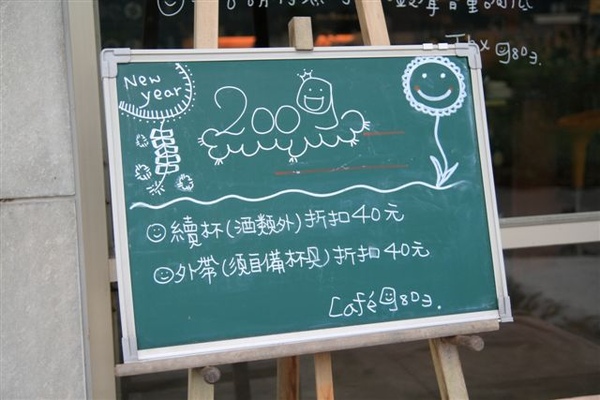 New
year
2009
續杯(酒類外)折扣40元
外帶(須自備杯具)折扣40元
Café 8D3.